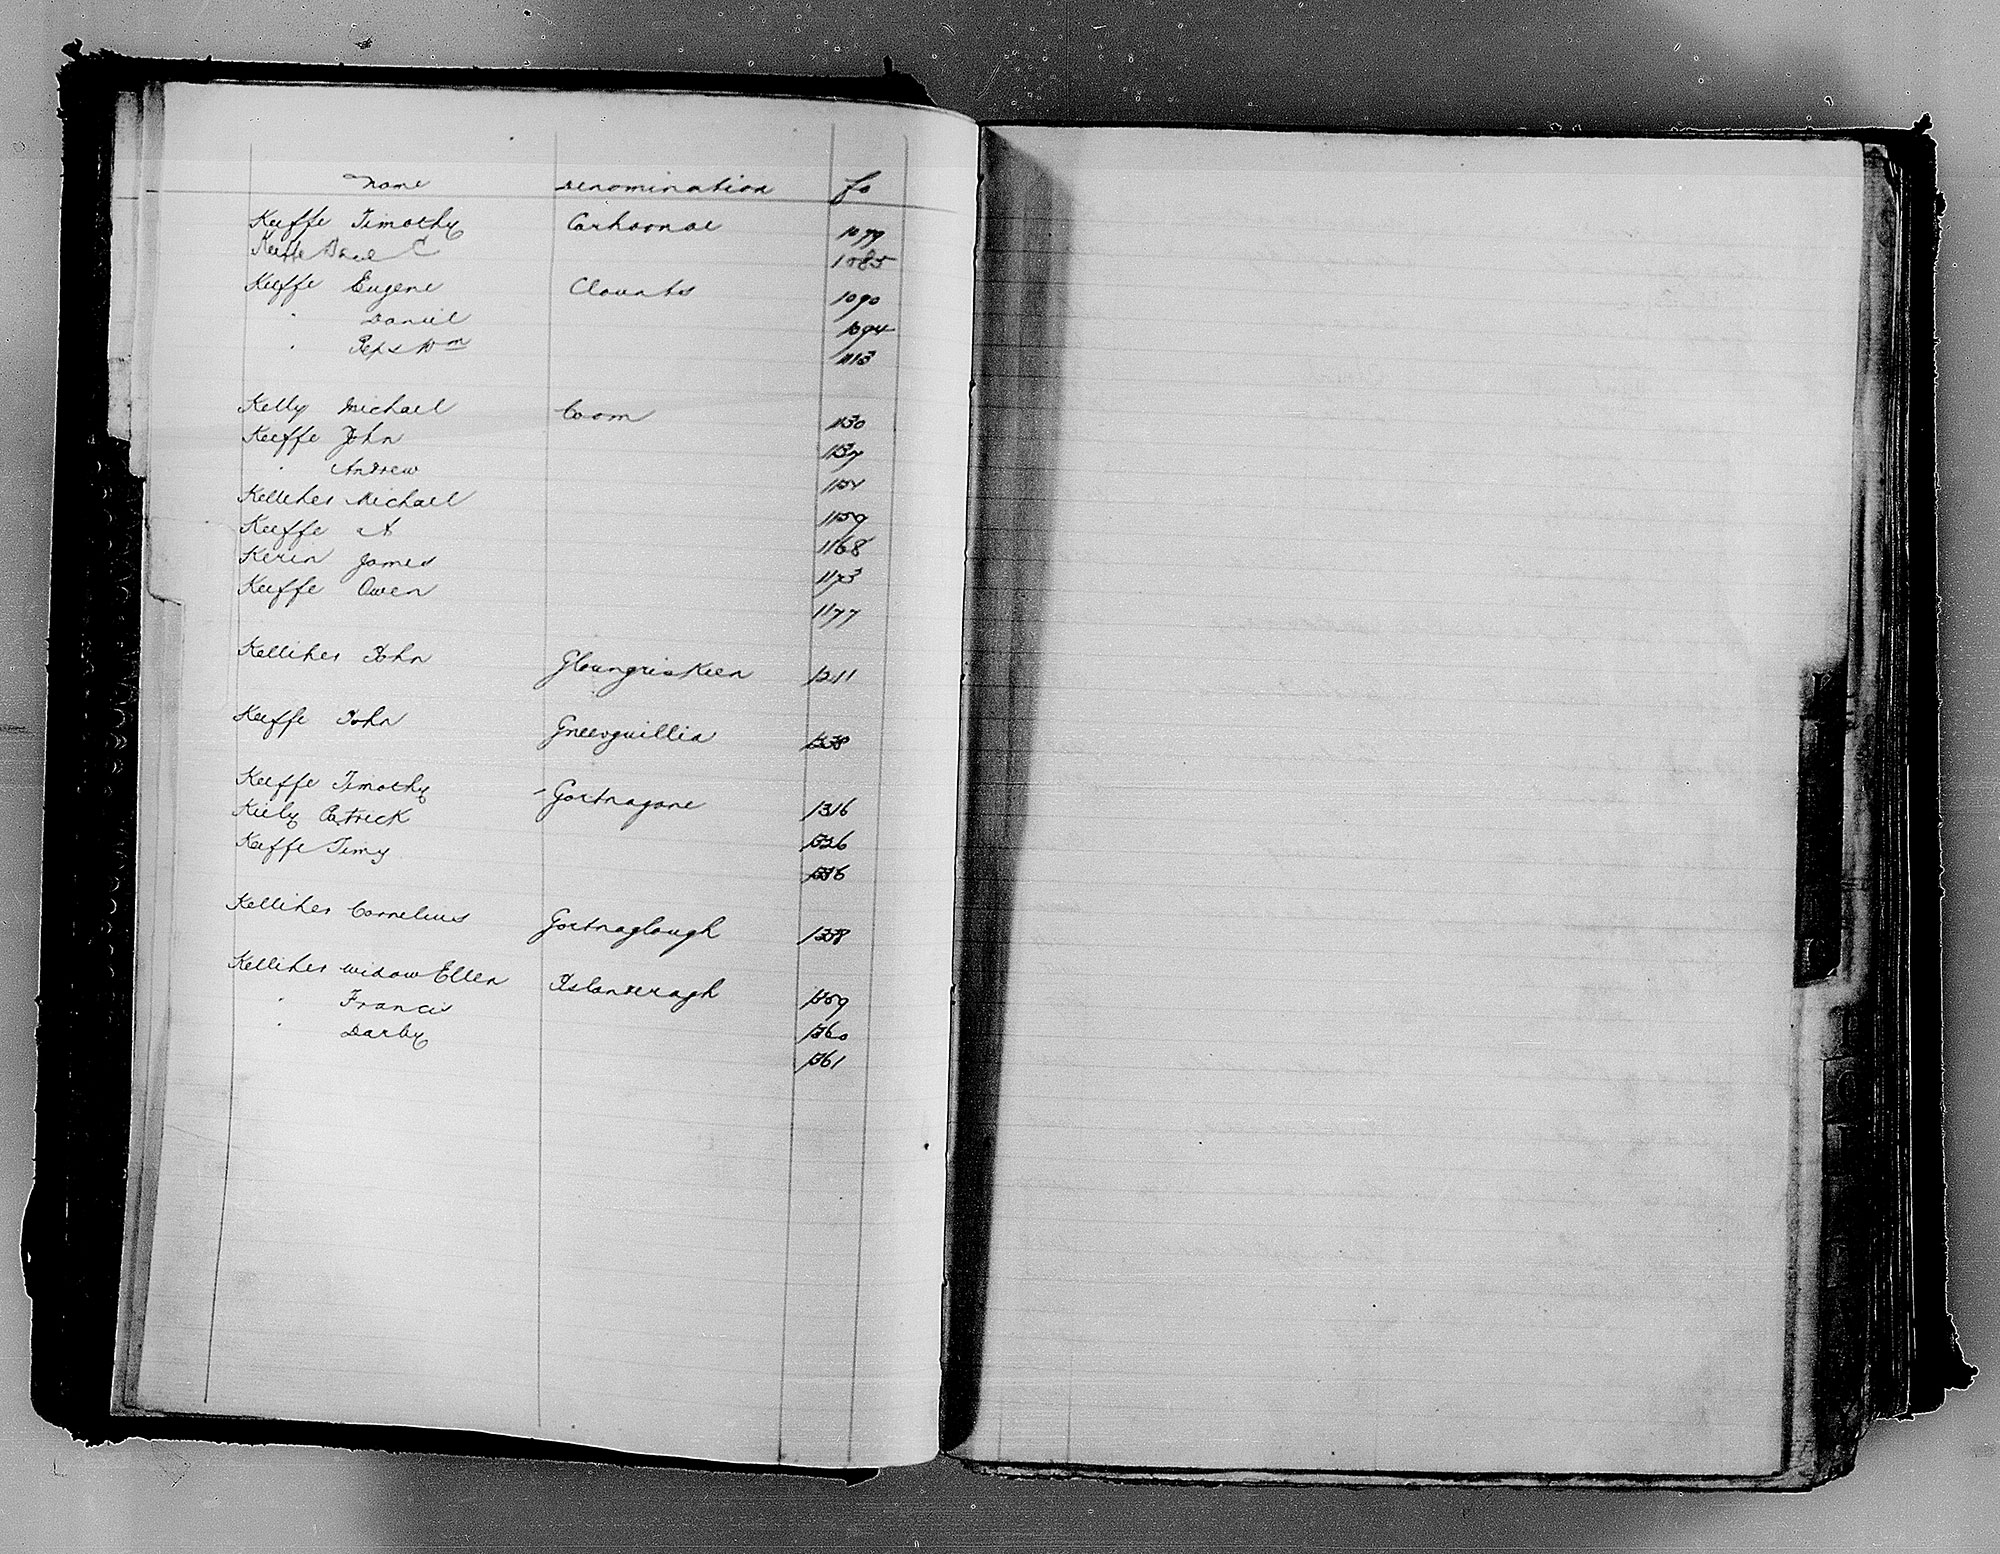 Name Denomination fo
Keeffe Timothy Carhoonoe 1077
Keeffe Danl C 1085
Keeffe Eugene Clounts 1090
" Daniel 1094
" Reps Wm 1113
Kelly Michael Coom 1130
Keeffe John 1137
" Andrew 1154
Kelliher Michael 1159
Keeffe A 1168
Kerin James 1173
Keeffe Owen 1177
Kelliher John Gloungriskeen 1211
Keeffe John Gneevguillia
Keeffe Timothy Gortnagane 1316
Kiely Patrick 1326
Keeffe Timy 1336
Kelliher Cornelius Gortnaglough 1338
Kelliher Widow Ellen Islanderagh
" Francis 1360
" Darby 1361